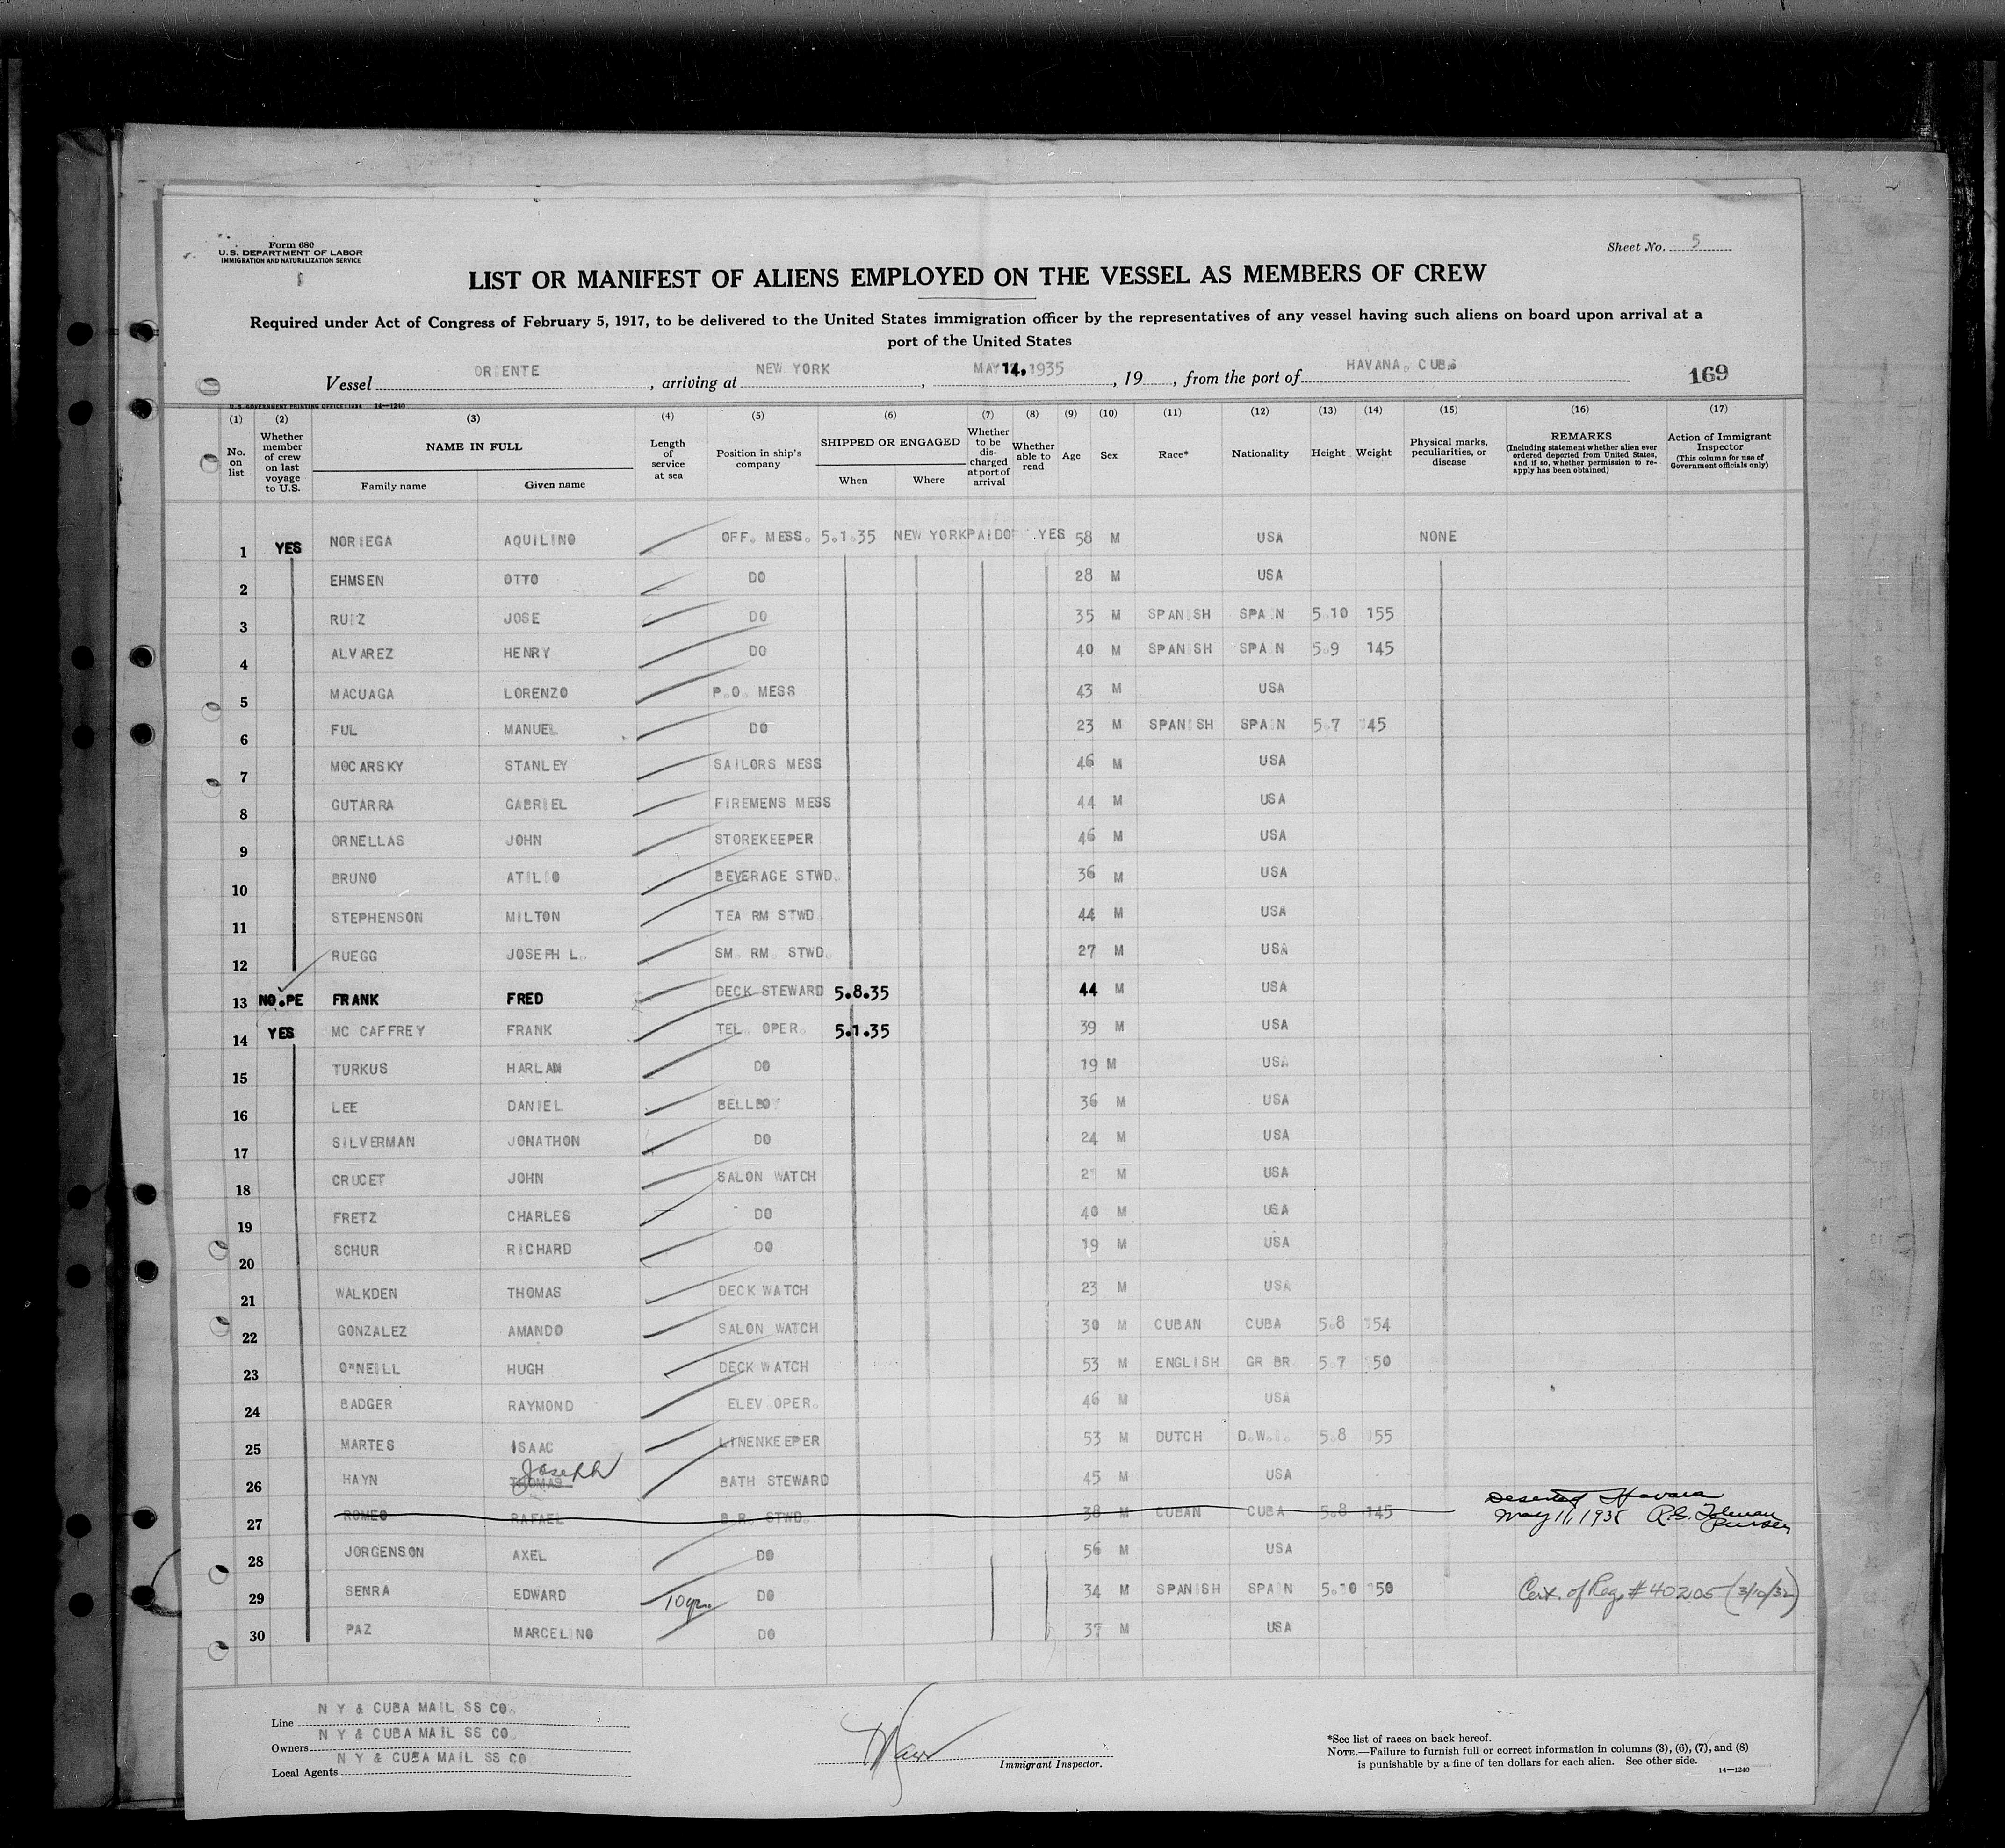 Form 680
U.S. DEPARTMENT OF LABOR
IMMIGRATION AND NATURALIZATION SERVICE
Sheet No. 5
LIST OR MANIFEST OF ALIENS EMPLOYED ON THE VESSEL AS MEMBERS OF CREW
Required under Act of Congress of February 5, 1917, to be delivered to the United States immigration officer by the representatives of any vessel having such aliens on board upon arrival at a
port of the United States
Vessel ORIENTE, arriving at NEW YORK, MAY 14, 1935, 19, from the port of HAVANA, CUBA
169
U.S. GOVERNMENT PRINTING OFFICE: 1934 14—1240
(1) No. on list
(2) Whether member of crew on last voyage to U.S.
(3) NAME IN FULL Family name Given name
(4) Length of service at sea
(5) Position in ship's company
(6) SHIPPED OR ENGAGED When Where
(7) Whether to be discharged at port of arrival
(8) Whether able to read
(9) Age
(10) Sex
(11) Race*
(12) Nationality
(13) Height
(14) Weight
(15) Physical marks, peculiarities, or disease
(16) REMARKS (Including statement whether alien ever ordered deported from United States, and if so, whether permission to reapply has been obtained)
(17) Action of Immigrant Inspector (This column for use of Government officials only)
1 YES NORIEGA AQUILINO OFF. MESS. 5.1.35 NEW YORK PAIDOF YES 58 M USA NONE
2 EHMSEN OTTO DO 28 M USA
3 RUIZ JOSE DO 35 M SPANISH SPAIN 5.10 155
4 ALVAREZ HENRY DO 40 M SPANISH SPAIN 5.9 145
5 MACUAGA LORENZO P.O. MESS 43 M USA
6 FUL MANUEL DO 23 M SPANISH SPAIN 5.7 145
7 MOCARSKY STANLEY SAILORS MESS 46 M USA
8 GUTARRA GABRIEL FIREMENS MESS 44 M USA
9 ORNELLAS JOHN STOREKEEPER 46 M USA
10 BRUNO ATILIO BEVERAGE STWD. 36 M USA
11 STEPHENSON MILTON TEA RM STWD. 44 M USA
12 RUEGG JOSEPH L. SM. RM. STWD. 27 M USA
13 NO.PE FRANK FRED DECK STEWARD 5.8.35 44 M USA
14 YES MC CAFFREY FRANK TEL. OPER. 5.1.35 39 M USA
15 TURKUS HARLAN DO 19 M USA
16 LEE DANIEL BELLBOY 36 M USA
17 SILVERMAN JONATHON DO 24 M USA
18 CRUCET JOHN SALON WATCH M USA
19 FRETZ CHARLES DO 40 M USA
20 SCHUR RICHARD DO 19 M USA
21 WALKDEN THOMAS DECK WATCH 23 M USA
22 GONZALEZ AMANDO SALON WATCH 30 M CUBAN CUBA 5.8 154
23 O"NEILL HUGH DECK WATCH 53 M ENGLISH GR BR. 5.7 150
24 BADGER RAYMOND ELEV OPER. 46 M USA
25 MARTES ISAAC LINENKEEPER 53 M DUTCH D.W.I. 5.8 155
26 HAYN THOMAS Joseph BATH STEWARD 45 M USA
27 ROMEO RAFAEL B.R. STWD. 38 M CUBAN CUBA 5.8 145 Deserted Havana
May 11, 1935 R.S. Tolman Purser
28 JORGENSON AXEL DO 56 M USA
29 SENRA EDWARD 10yrs. DO 34 M SPANISH SPAIN 5.10 150 Cert. of Reg. #40205 (3/10/32)
30 PAZ MARCELINO DO 37 M USA
Line N Y & CUBA MAIL SS CO.
Owners N Y & CUBA MAIL SS CO.
Local Agents N Y & CUBA MAIL SS CO
Immigrant Inspector.
*See list of races on back hereof.
NOTE.—Failure to furnish full or correct information in columns (3), (6), (7), and (8)
is punishable by a fine of ten dollars for each alien. See other side.
14—1240